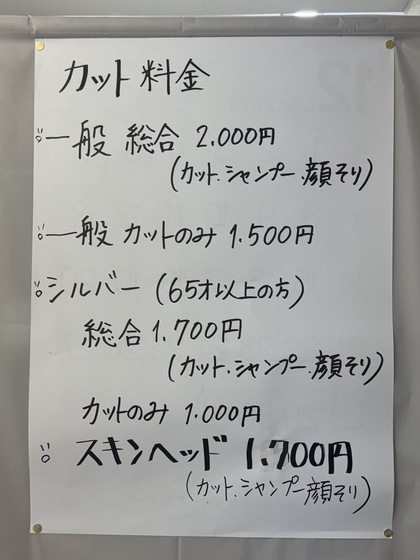 カット料金
一般 総合 2.000円
(カット.シャンプー.顔そり)
一般 カットのみ 1.500円
シルバー (65才以上の方)
総合 1.700円
(カット.シャンプー.顔そり)
カットのみ 1.000円
スキンヘッド 1.700円
(カット.シャンプー顔そり)